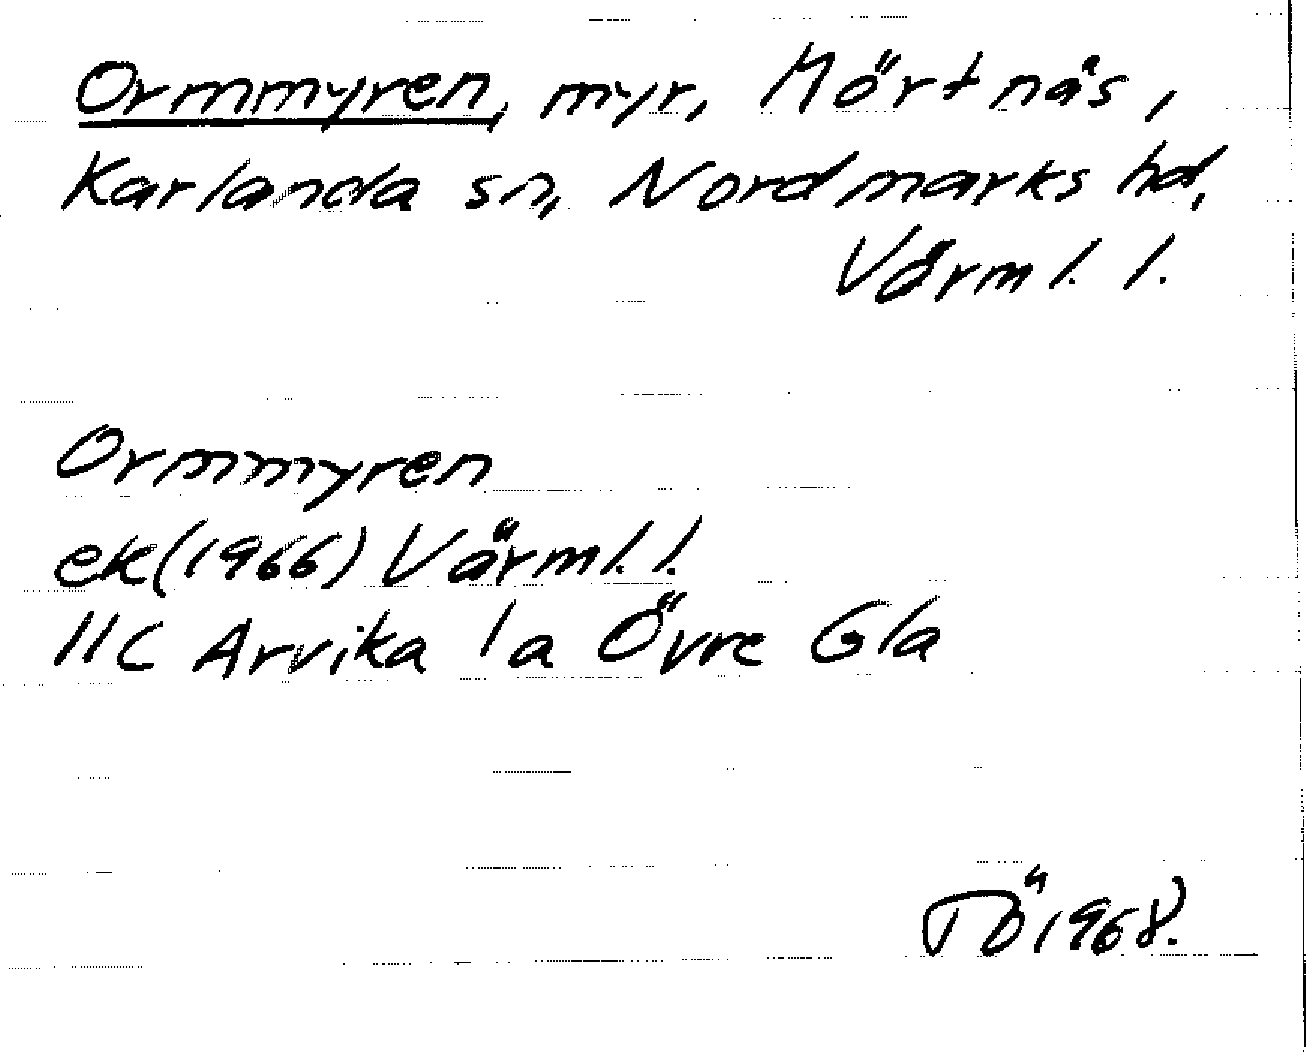 Ormmyren, myr, Mörtnäs,
Karlanda sn, Nordmarks hd,
Värml. l.
Ormmyren
ek(1966) Värml. l.
11C Arvika 1a Övre Gla
TÖ 1968.